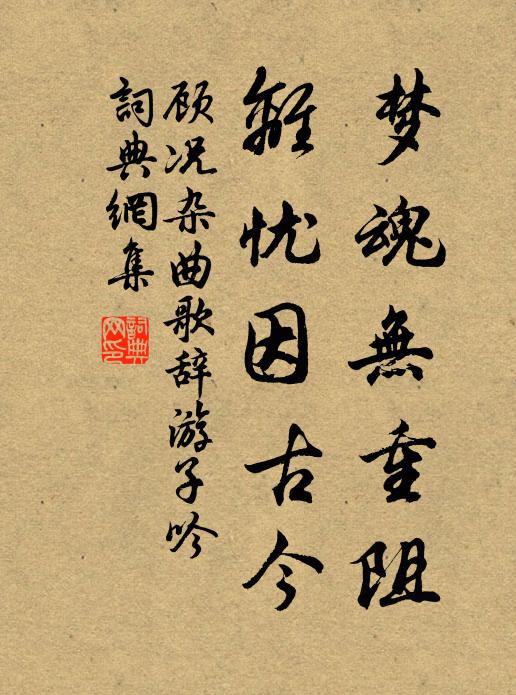 梦魂無重阻
離忧因古今
顾况杂曲歌辞游子吟
詞典網集
詞典網印